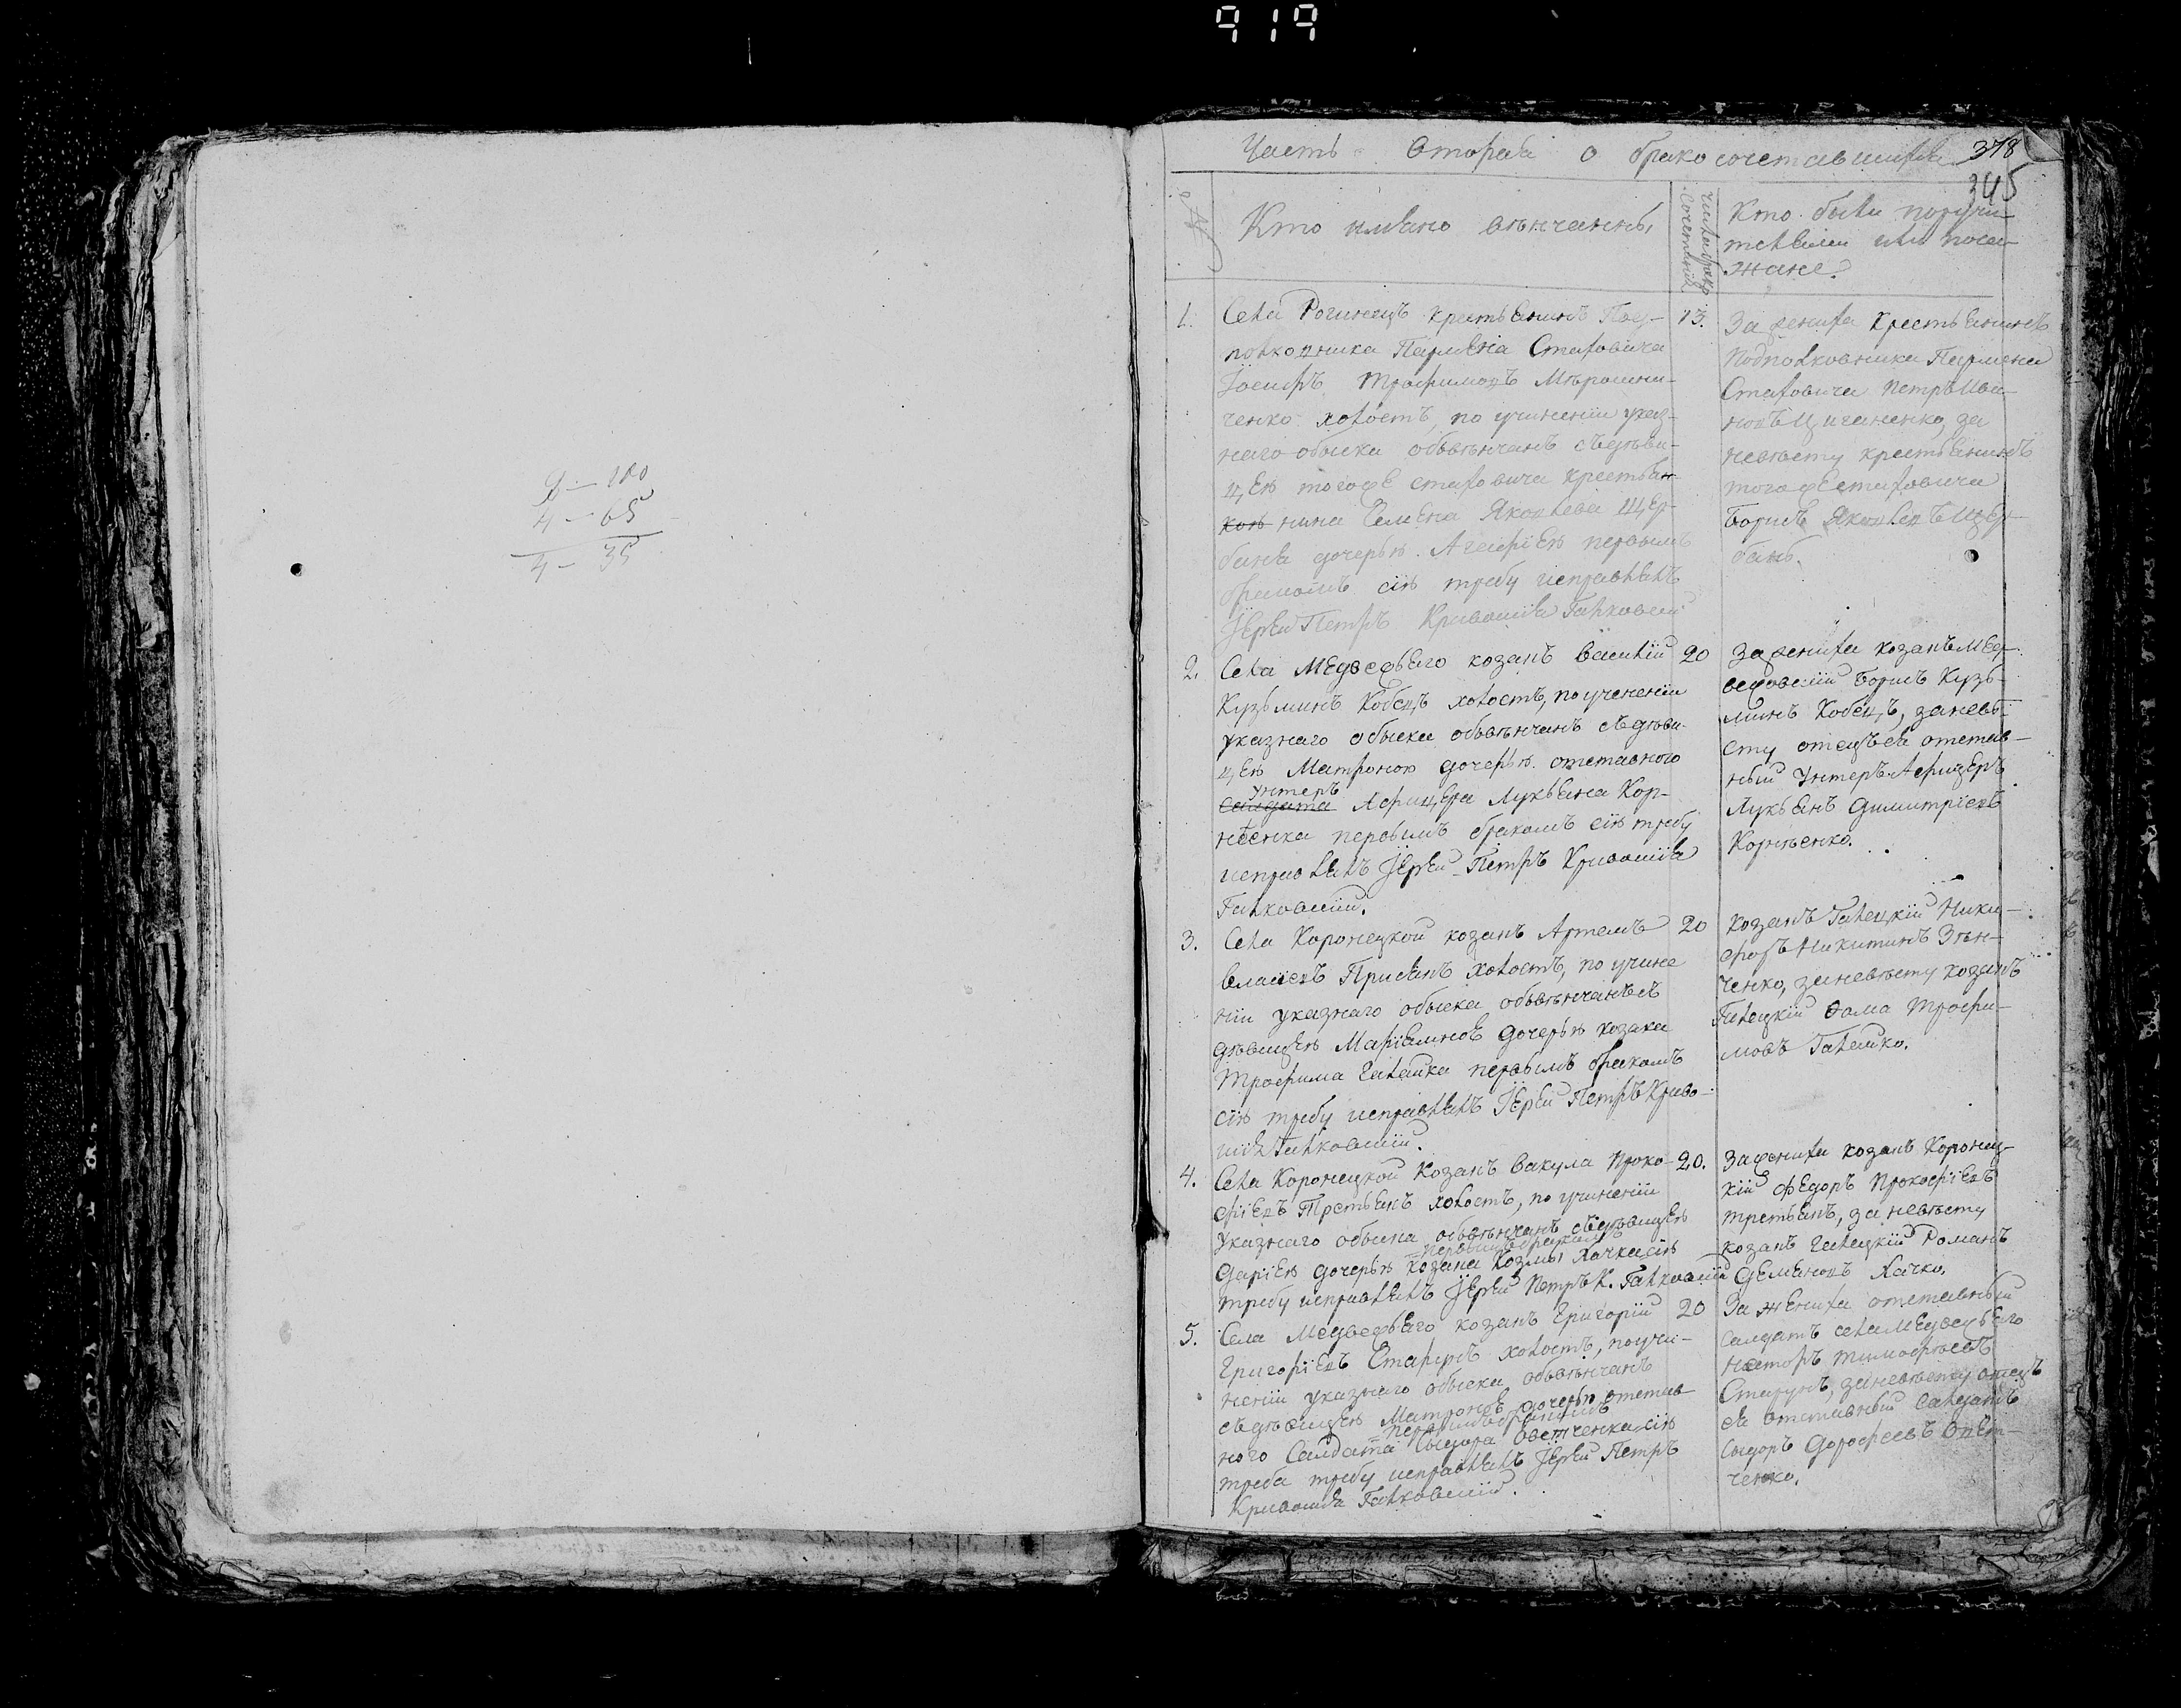 919
9 — 100
4 — 65
4 — 35
Часть вторая о бракосочетавшихся 378
345
№
Кто имяно вѣнчанны,
число бракосочетаний
Кто были поручи-
телями или поез-
жане.
1.
Села Рогинецъ крестьянинъ Под-
полковника Пармена Стаховича
Іосифъ Трофимовъ Мѣрошни-
ченко холостъ, по учиненіи указ-
наго обыска обвѣнчанъ съ дѣви-
цею тогоже Стаховича крестья-
нина Семена Яковлева Щер-
баня дочерью Агафіею первымъ
бракомъ сію требу исправлялъ
Іерей Петръ Кривошія Галковскій
13.
За жениха крестьянинъ
Подполковника Пармена
Стаховича Петръ Ива-
новъ Циганенко, за
невѣсту крестьянинъ
тогожъ Стаховича
Борисъ Яковлевъ Щер-
бань.
2.
Села Медвежьего козакъ Василій
Кузьминъ Кобецъ холостъ, по учененіи
указнаго обыска обвѣнчанъ съ дѣви-
цею Матроною дочерью отставного
унтеръ
салдата Афицера Лукьяна Кор-
нѣенка первымъ бракомъ сію требу
исправлялъ Іерей Петръ Кривошія
Галковскій.
20
За жениха козакъ мед-
вежовскій Борисъ Кузь-
минъ Кобецъ, за невѣ-
сту отецъ ея отстав-
ный Унтеръ Афицеръ
Лукьянъ Димитріевъ
Корнѣенко.
3.
Села Коронецкой козакъ Артемъ
Власіевъ холостъ, по учине
ніи указнаго обыска обвѣнчанъ съ
дѣвицею Маріамною дочерью козака
Трофима Галашка первымъ бракомъ
сію требу исправлялъ Іерей Петръ Криво-
шія Галковскій.
20
Козакъ Галецкій Ники-
форъ Никитинъ Зѣн-
ченко, за невѣсту козакъ
Галецкій Фома Трофи-
мовъ Галашко.
4.
Села Коронецкой Козакъ Вакула Проко-
фіевъ Третьякъ холостъ, по учиненіи
указнаго обыска обвѣнчанъ съ дѣвицею
первымъ бракомъ
Даріею дочерью козака Козмы Хачка сію
требу исправлялъ Іерей Петръ К. Галковскій
20.
За жениха козакъ Коронец-
кій Федоръ Прокофіевъ
Третьякъ, за невѣсту
козакъ галецкій Романъ
Семеновъ Хачко.
5.
Села Медвежьего козакъ Григорій
Григоріевъ Старунъ холостъ, по учи-
неніи указнаго обыска обвѣнчанъ
съ дѣвицею Матроною дочерью отстав
первымъ бракомъ
ного Салдата Сыдора Оветченка сію
треба требу исправлялъ Іерей Петръ
Кривошія Галковскій.
20
За жениха отставный
Салдатъ села Медведьего
Несторъ Тимофѣевъ
Старунъ, за невѣсту отецъ
ея отставный Салдатъ
Сыдоръ Дорофеевъ Овет-
ченко.